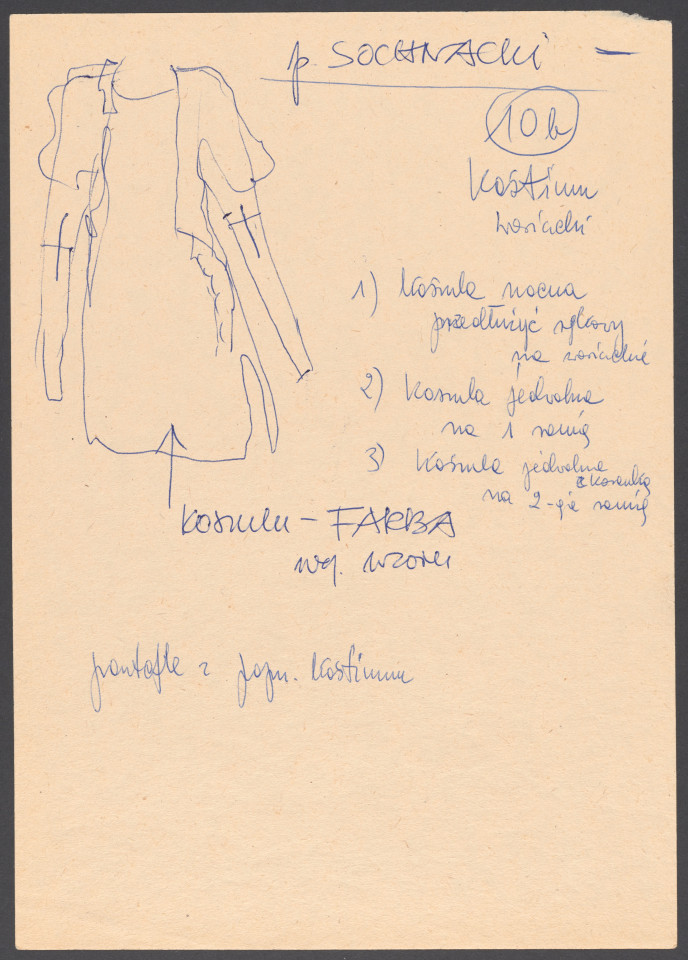 p. SOCHNACKI —
10b
Kostium
1) Koszula nocna
przedłużyć rękawy
na
2) Koszula jedwabna
na 1 ramię
3) Koszula jedwabna
z koronką
na 2-gie ramię
Koszule – FARBA
wg. wzoru
pantofle z pop. kostiumu